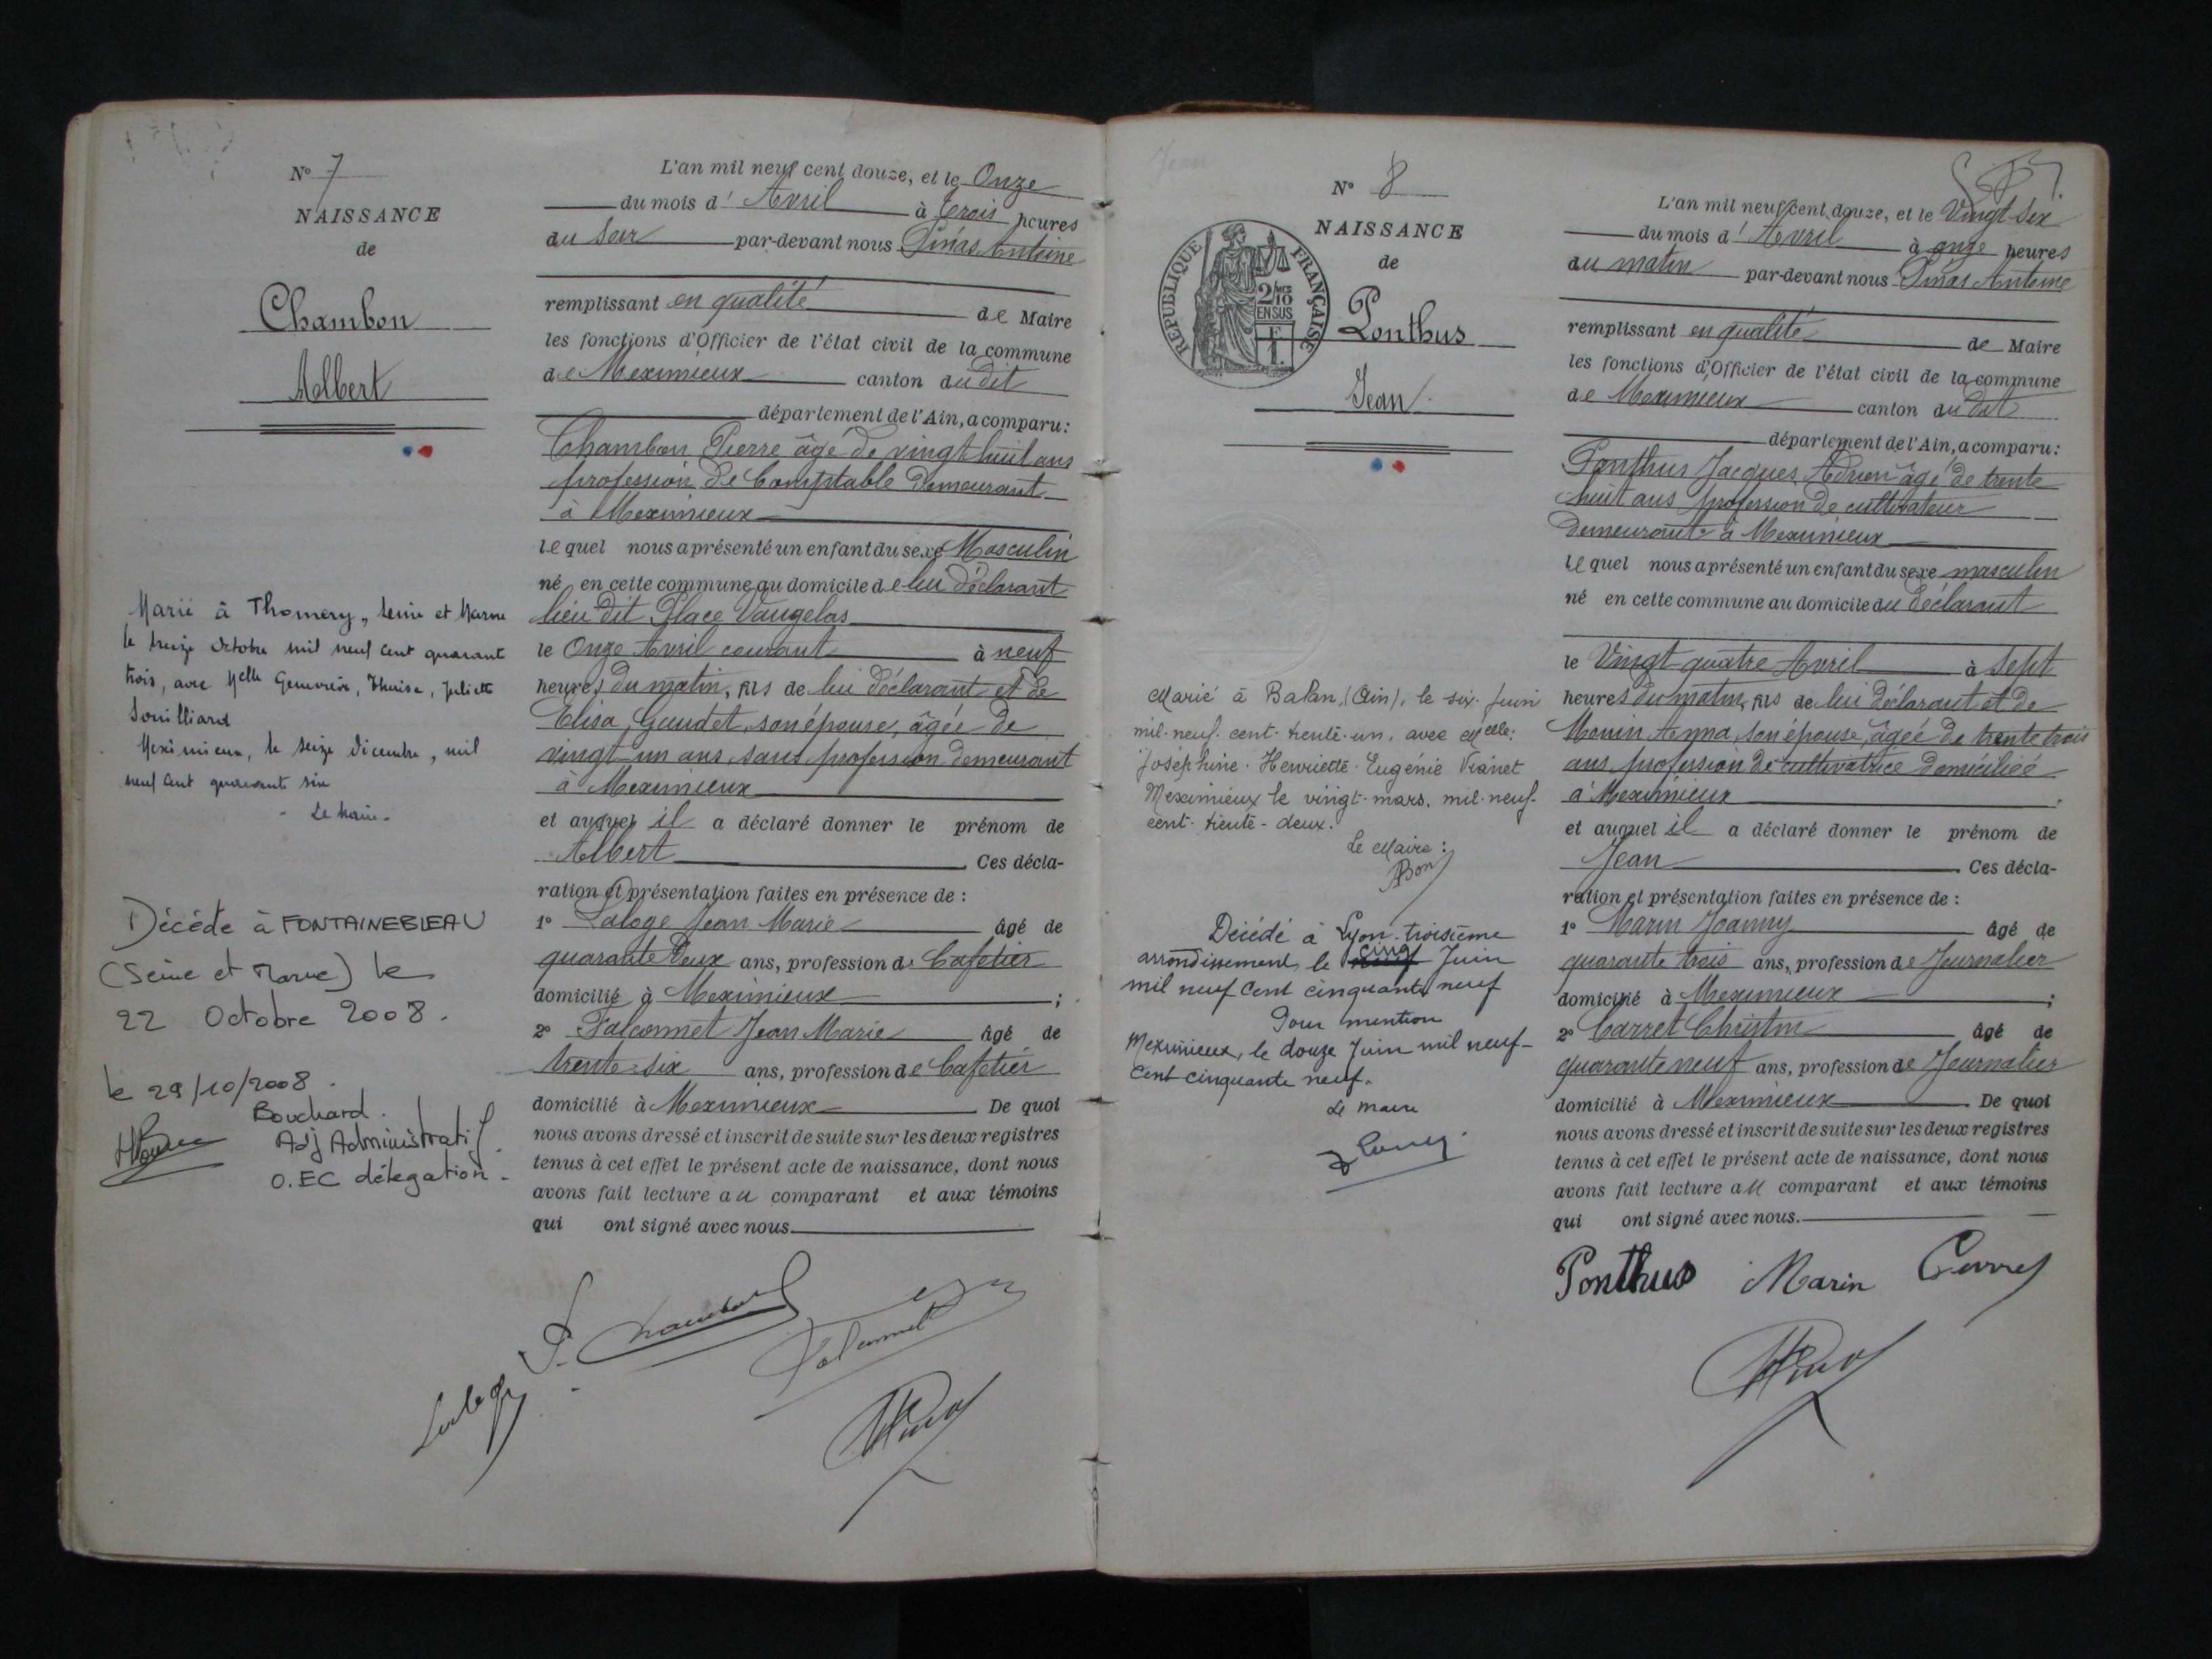 N° 7
NAISSANCE
de
Chambon
Albert
Marié à Thomery, Seine et Marne
le treize Octobre mil neuf cent quarant
trois, avec Melle Geneviève, Thérèse, Juliette
Souilliard
Meximieux, le seize décembre, mil
neuf cent quarante six
Le Maire.
Décédé à FONTAINEBLEAU
(Seine et Marne) le
22 Octobre 2008.
le 29/10/2008.
Bouchard.
Adj Administratif
O.EC délégation.
L'an mil neuf cent douze, et le Onze
du mois d' Avril à trois heures
du soir par-devant nous Pinas Antoine
remplissant en qualité de Maire
les fonctions d'Officier de l'état civil de la commune
de Meximieux canton du dit
département de l'Ain, a comparu :
Chambon Pierre âgé de vingt huit ans
profession de Comptable demeurant
à Meximieux
lequel nous a présenté un enfant du sexe Masculin
né en cette commune au domicile de lui déclarant
lieu dit Place Vaugelas
le Onze Avril courant à neuf
heures du matin, fils de lui déclarant et de
Elisa Gaudet, son épouse, âgée de
vingt-un ans sans profession demeurant
à Meximieux
et auquel il a déclaré donner le prénom de
Albert. Ces décla-
ration et présentation faites en présence de :
1° Laloge Jean Marie âgé de
quarante deux ans, profession de Cafetier
domicilié à Meximieux ;
2° Falconnet Jean Marie âgé de
trente-six ans, profession de Cafetier
domicilié à Meximieux. De quoi
nous avons dressé et inscrit de suite sur les deux registres
tenus à cet effet le présent acte de naissance, dont nous
avons fait lecture au comparant et aux témoins
qui ont signé avec nous.
P. Chambon
Falconnet
Laloge
N° 8
NAISSANCE
de
REPUBLIQUE FRANÇAISE
2/10
EN SUS
Ponthus
Jean
Marié à Balan, (Ain), le six Juin
mil-neuf-cent-trente-un, avec Melle:
Joséphine-Henriette-Eugénie Vianet
Meximieux le vingt-mars, mil-neuf-
cent-trente-deux.
Le Maire :
Bon
Décédé à Lyon troisième
arrondissement, le cinq Juin
mil neuf cent cinquante neuf
Pour mention
Meximieux, le douze Juin mil neuf-
cent cinquante neuf.
Le maire
L'an mil neuf cent douze, et le Vingt-six
du mois d' Avril à onze heures
du matin par-devant nous Pinas Antoine
remplissant en qualité de Maire
les fonctions d'Officier de l'état civil de la commune
de Meximieux canton du dit
département de l'Ain, a comparu :
Ponthus Jacques Adrien âgé de trente
huit ans profession de cultivateur
demeurant à Meximieux
lequel nous a présenté un enfant du sexe masculin
né en cette commune au domicile du déclarant
le Vingt quatre Avril à Sept
heures du matin, fils de lui déclarant et de
Monin Anna, son épouse, âgée de trente trois
ans profession de cultivatrice domiciliée
à Meximieux.
et auquel il a déclaré donner le prénom de
Jean. Ces décla-
ration et présentation faites en présence de :
1° Marin Joanny âgé de
quarante trois ans, profession de Journalier
domicilié à Meximieux ;
2° Carret Christin âgé de
quarante neuf ans, profession de Journalier
domicilié à Meximieux. De quoi
nous avons dressé et inscrit de suite sur les deux registres
tenus à cet effet le présent acte de naissance, dont nous
avons fait lecture au comparant et aux témoins
qui ont signé avec nous.
Ponthus Marin Carret